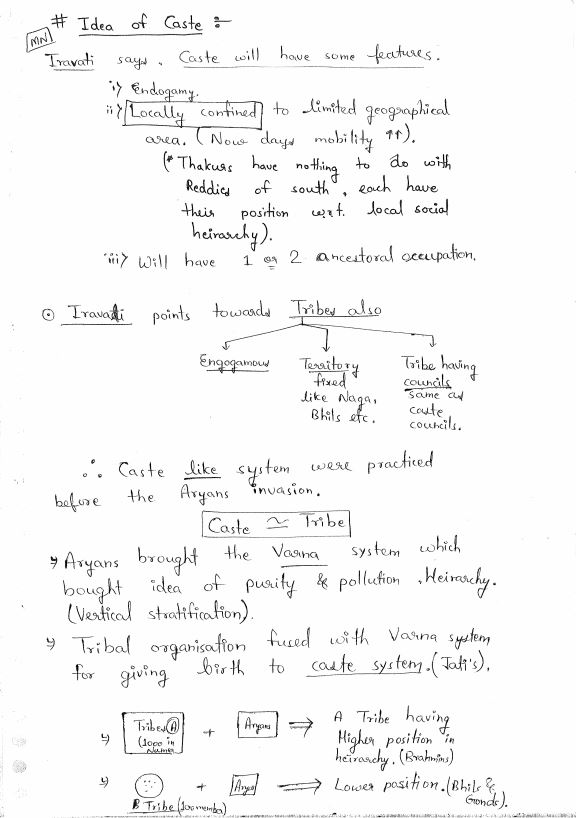 # Idea of Caste :-
MN
Iravati says, Caste will have some features.
i) Endogamy.
ii) Locally confined to limited geographical
area. (Now days mobility ↑↑).
(* Thakurs have nothing to do with
Reddies of south, each have
their position w.r.t. local social
heirarchy).
iii) Will have 1 or 2 ancestoral occupation.
⊙ Iravati points towards Tribes also
Engogamous
Territory fixed like Naga, Bhils etc.
Tribe having councils same as caste councils.
∴ Caste like system were practiced
before the Aryans invasion.
Caste ≃ Tribe
Aryans brought the Varna system which
bought idea of purity & pollution, Heirarchy.
(Vertical stratification).
Tribal organisation fused with Varna system
for giving birth to caste system. (Jati's).
Tribes (A) (1000 in Number) + Aryans ⇒ A Tribe having
Higher position in
heirarchy. (Brahmins)
+ ⇒ Lower position. (Bhils &
Gonds).
B Tribe (100 memba)